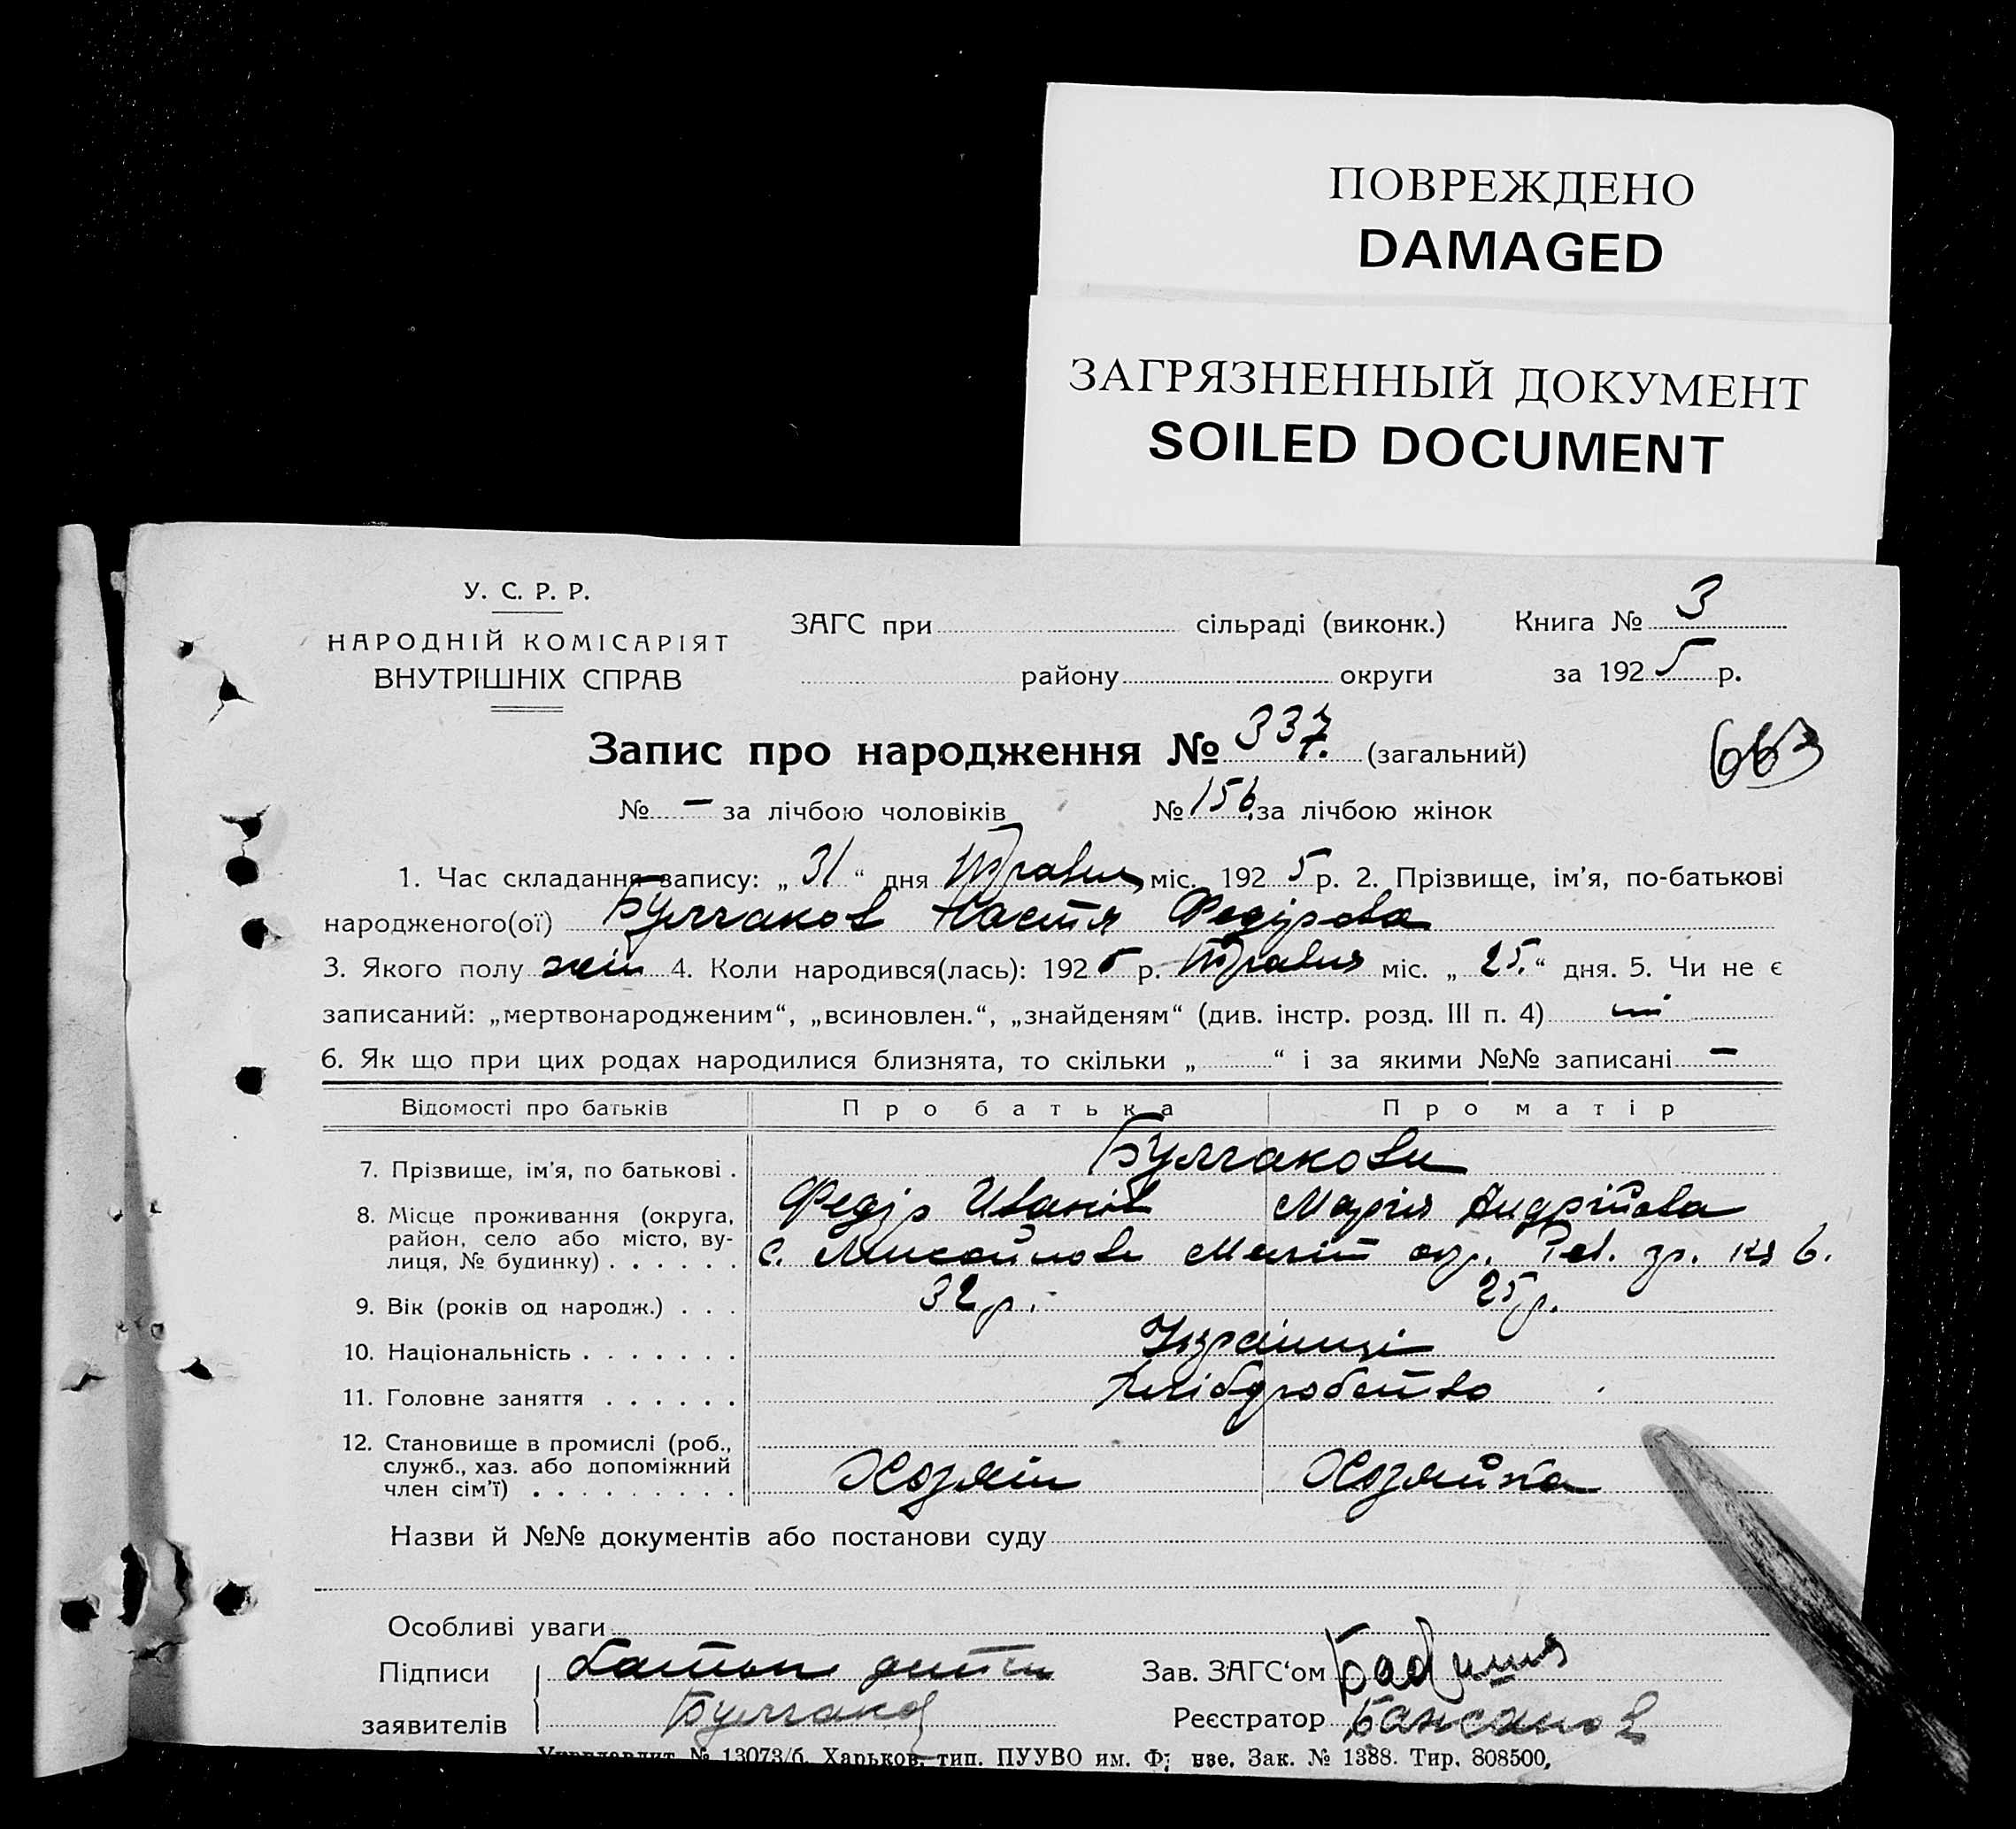 ПОВРЕЖДЕНО
DAMAGED
ЗАГРЯЗНЕННЫЙ ДОКУМЕНТ
SOILED DOCUMENT
У. С. Р. Р.
НАРОДНІЙ КОМІСАРІЯТ
ВНУТРІШНІХ СПРАВ
ЗАГС при сільраді (виконк.)
району округи
Книга № 3
за 1925 р.
Запис про народження № 337. (загальний)
663
№ — за лічбою чоловіків № 156. за лічбою жінок
1. Час складання запису: „31“ дня Травня міс. 1925 р. 2. Прізвище, ім'я, по-батькові
народженого(ої) Булгаков Настя Федірова
3. Якого полу жін 4. Коли народився(лась): 1925 р. Травня міс. „25.“ дня. 5. Чи не є
записаний: „мертвонародженим“, „всиновлен.“, „знайденям“ (див. інстр. розд. III п. 4) ні
6. Як що при цих родах народилися близнята, то скільки „ “ і за якими №№ записані —
Відомості про батьків Про батька Про матір
7. Прізвище, ім'я, по батькові . Булгакови
Федір Іванів Марія Андрійова
8. Місце проживання (округа,
район, село або місто, ву-
лиця, № будинку) . . . . . . с. Михайловк Меліт окр.
9. Вік (років од народж.) . . . 32 р. 25 р.
10. Національність . . . . . . . Українці
11. Головне заняття . . . . . . Хліборобство
12. Становище в промислі (роб.,
служб., хаз. або допоміжний
член сім'ї) . . . . . . . . . Хозяін Хозяйка
Назви й №№ документів або постанови суду
Особливі уваги
Підписи Батько дитини
заявителів Булгаков
Зав. ЗАГС‘ом
Реєстратор
№ 13073/б. Харьков, тип. ПУУВО им. Зак. № 1388. Тир. 808500,